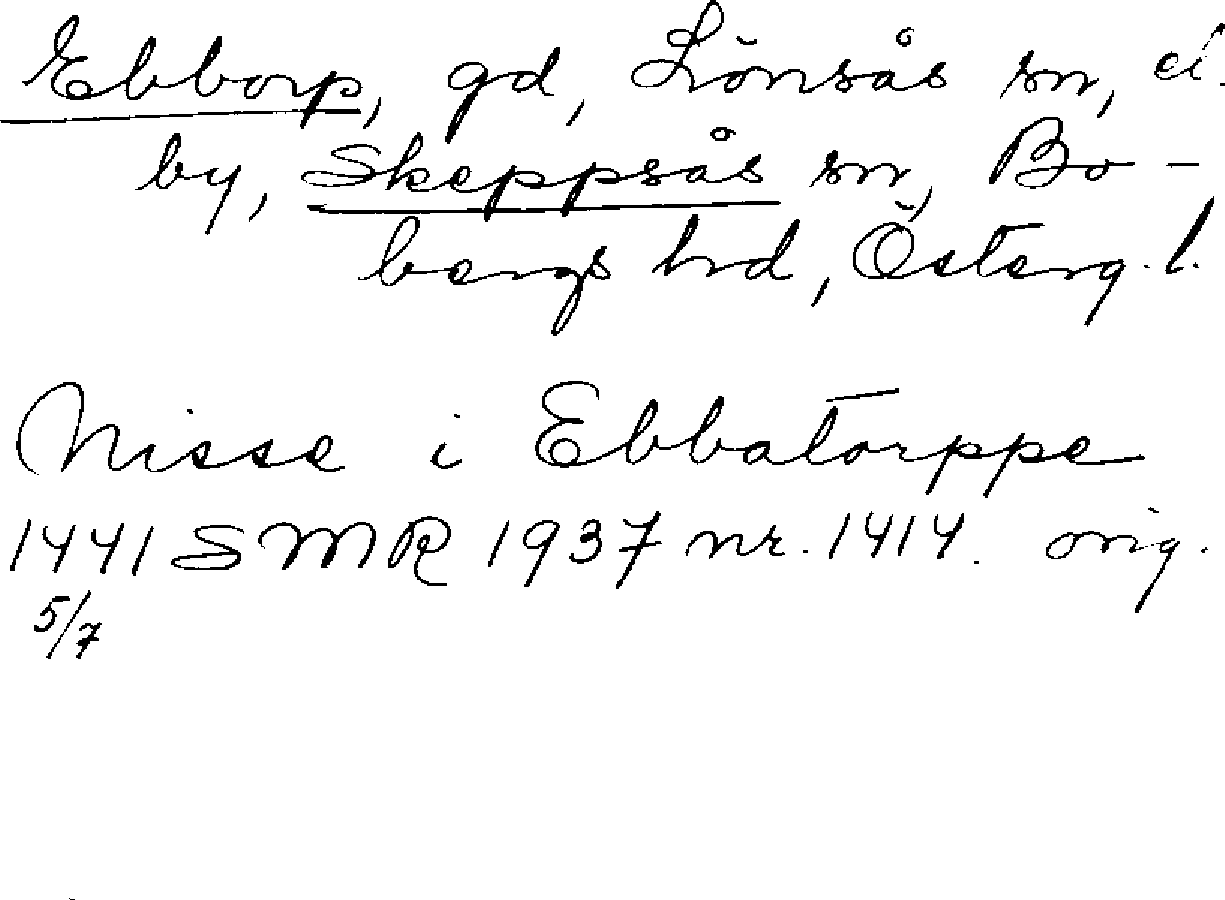 Ebborp, gd, Lönsås sn, ei.
by, Skeppsås sn, Bo-
bergs hd, Österg. l.
Nisse i Ebbatorppe
1441 SMR 1937 nr. 1414. orig.
5/7